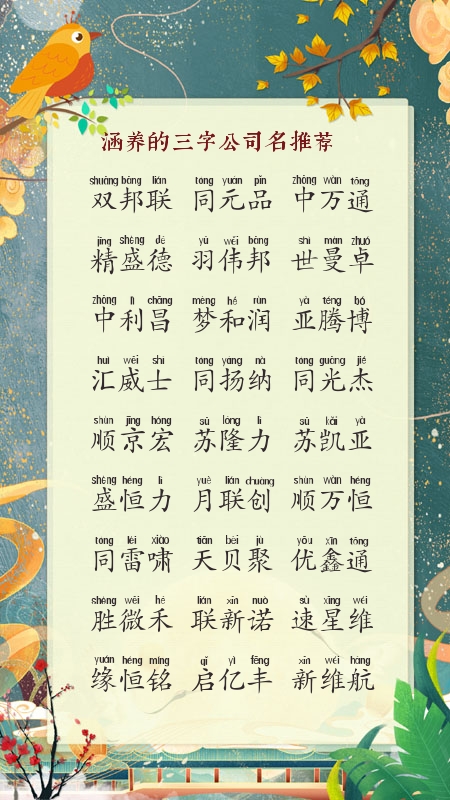 涵养的三字公司名推荐
shuāng bāng lián tóng yuán pǐn zhōng wàn tōng
双邦联 同元品 中万通
jīng shèng dé yǔ wěi bāng shì màn zhuó
精盛德 羽伟邦 世曼卓
zhōng lì chāng mèng hé rùn yà téng bó
中利昌 梦和润 亚腾博
huì wēi shì tóng yáng nà tóng guāng jié
汇威士 同扬纳 同光杰
shùn jīng hóng sū lóng lì sū kǎi yà
顺京宏 苏隆力 苏凯亚
shèng héng lì yuè lián chuàng shùn wàn héng
盛恒力 月联创 顺万恒
tóng léi xiào tiān bèi jù yōu xīn tōng
同雷啸 天贝聚 优鑫通
shèng wēi hé lián xīn nuò sù xīng wéi
胜微禾 联新诺 速星维
yuán héng míng qǐ yì fēng xīn wéi háng
缘恒铭 启亿丰 新维航